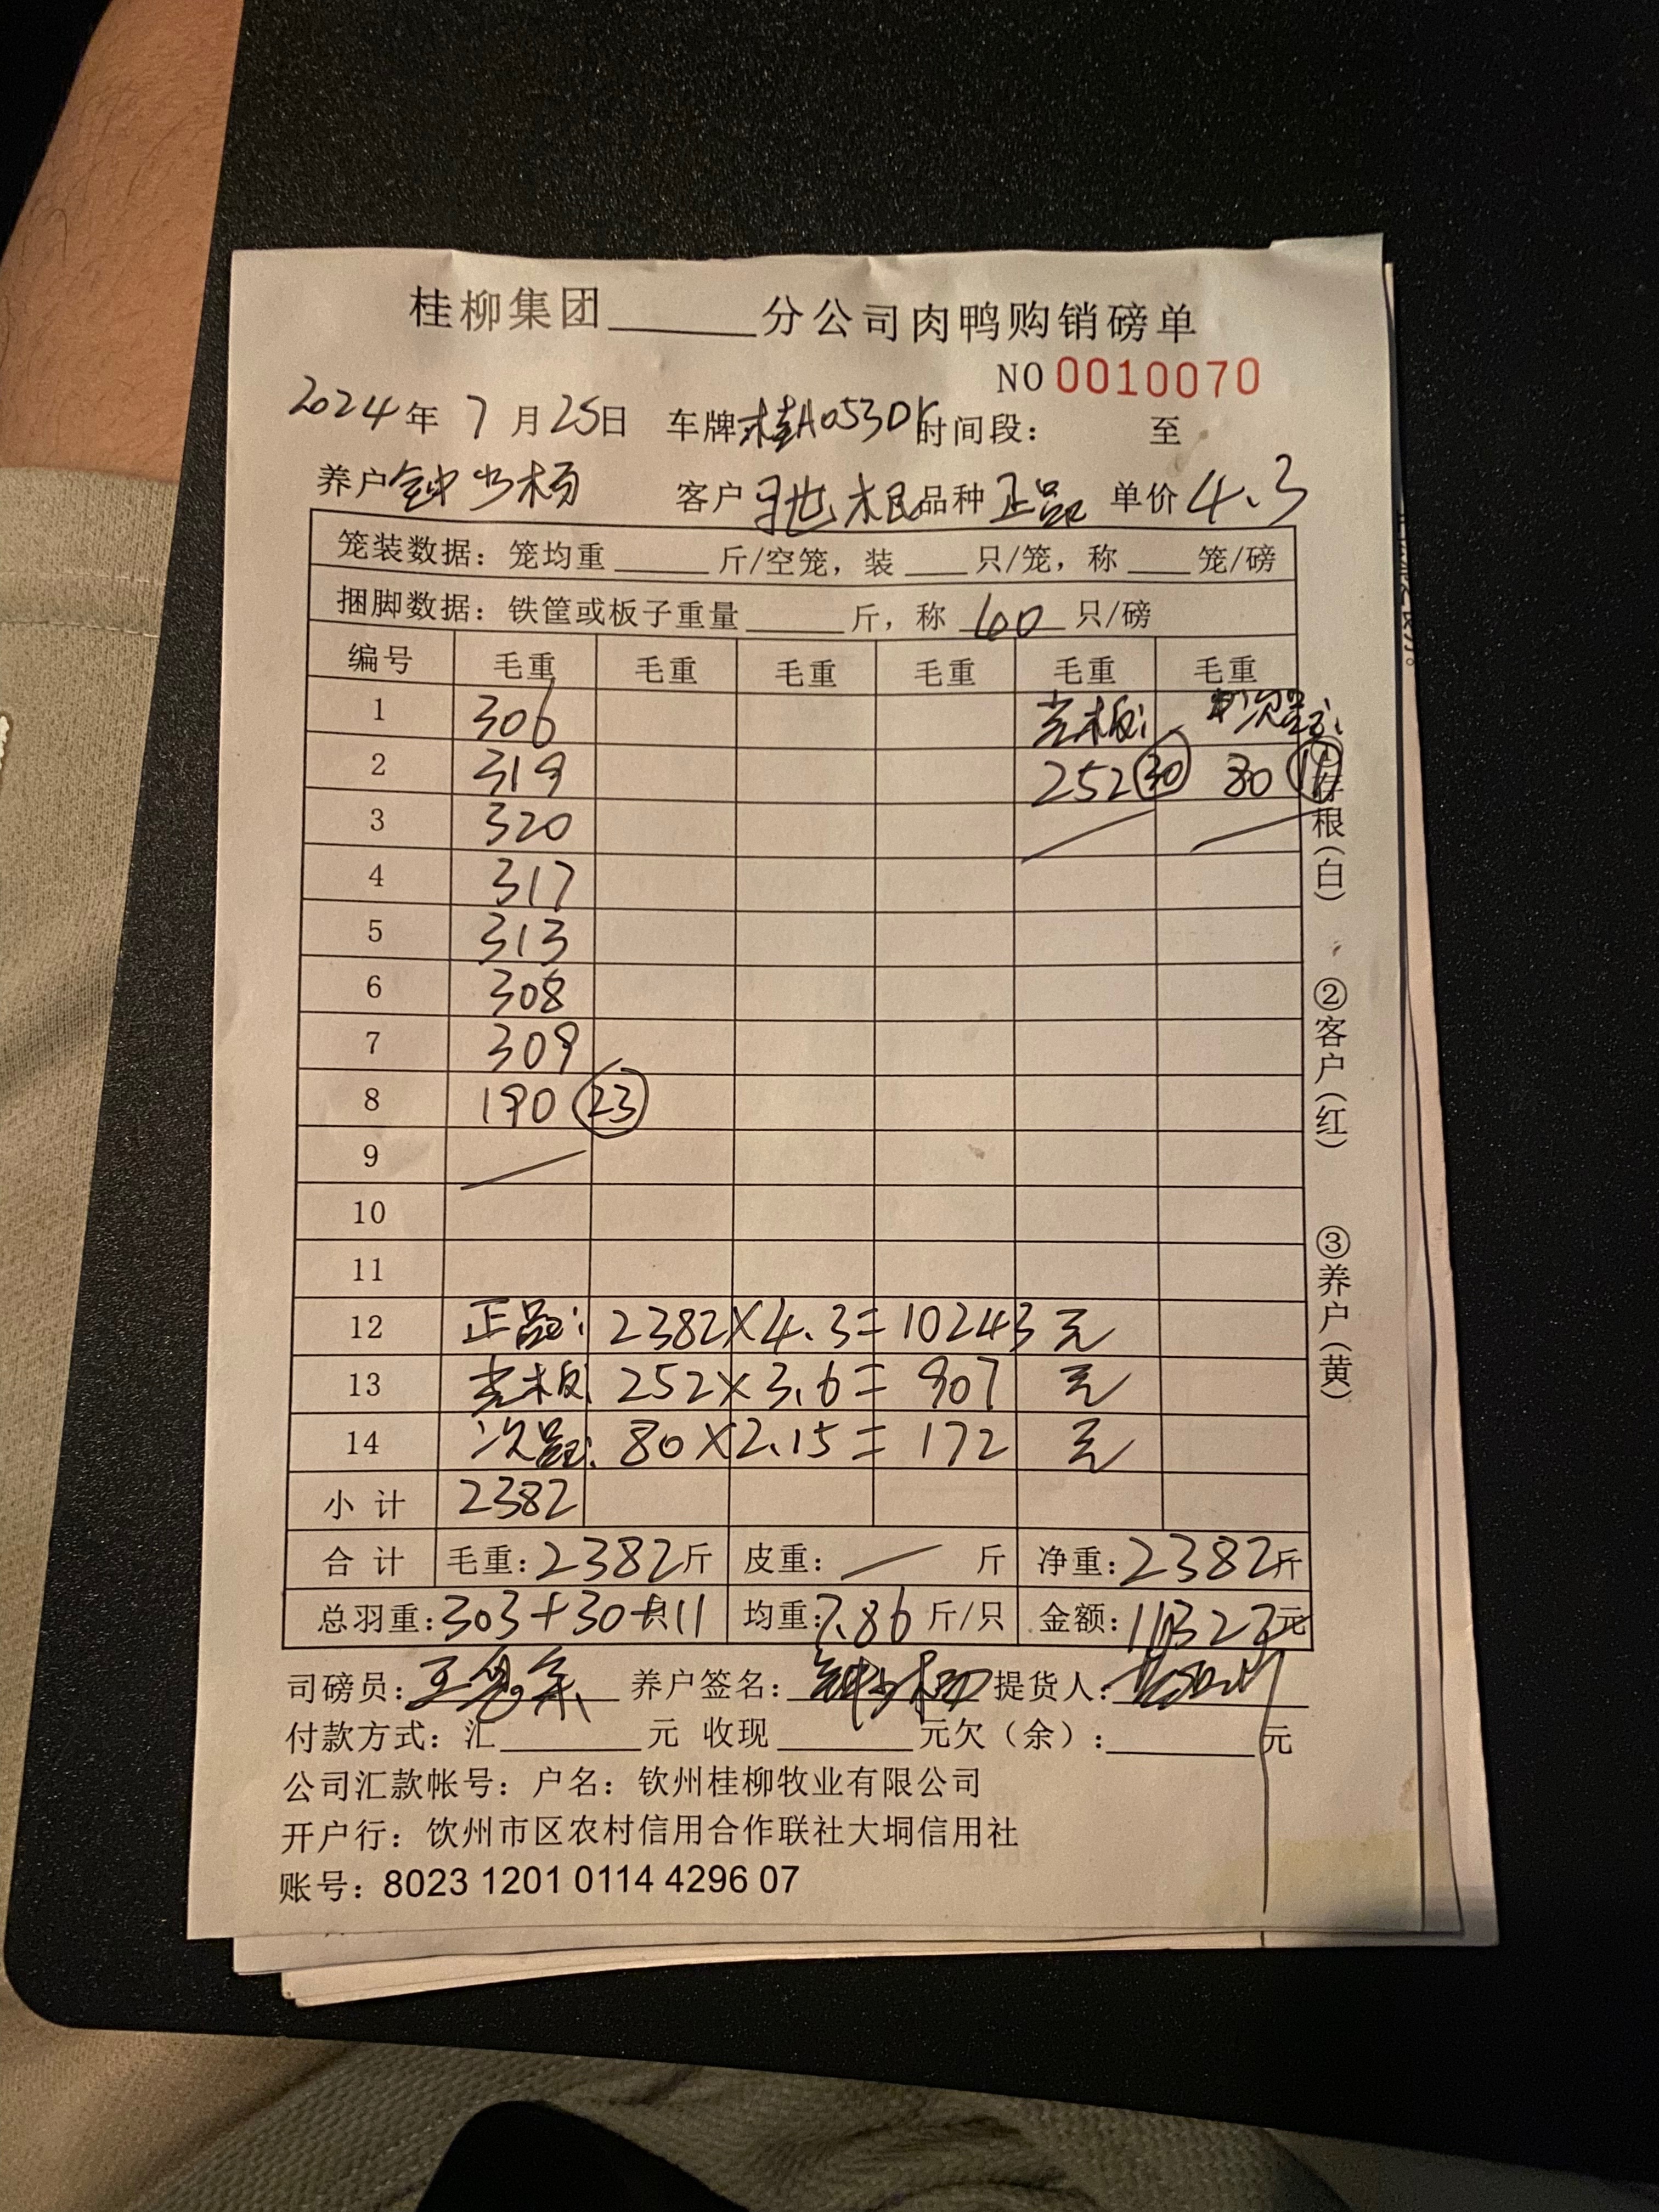 桂柳集团______分公司肉鸭购销磅单
NO 0010070
2024年 7月25日 车牌桂A053DK时间段： 至
养户钟少杨 客户 木根 品种 正品 单价 4.3
笼装数据：笼均重____斤/空笼，装___只/笼，称___笼/磅
捆脚数据：铁筐或板子重量____斤，称 60 只/磅
编号 毛重 毛重 毛重 毛重 毛重 毛重
1 306 光板： 次品：
2 319 252 30 80 11
3 320
4 317
5 313
6 308
7 309
8 190 23
9
10
11
12 正品： 2382×4.3=10243 元
13 光板： 252×3.6=907 元
14 次品： 80×2.15=172 元
小 计 2382
合 计 毛重：2382斤 皮重： 斤 净重：2382斤
总羽重：303+30+11 均重：7.86 斤/只 金额：11322元
司磅员： 养户签名：钟少杨 提货人：
付款方式：汇______元 收现______元欠（余）：______元
公司汇款帐号：户名：钦州桂柳牧业有限公司
开户行：饮州市区农村信用合作联社大垌信用社
账号：8023 1201 0114 4296 07
存根（白）
②客户（红）
③养户（黄）